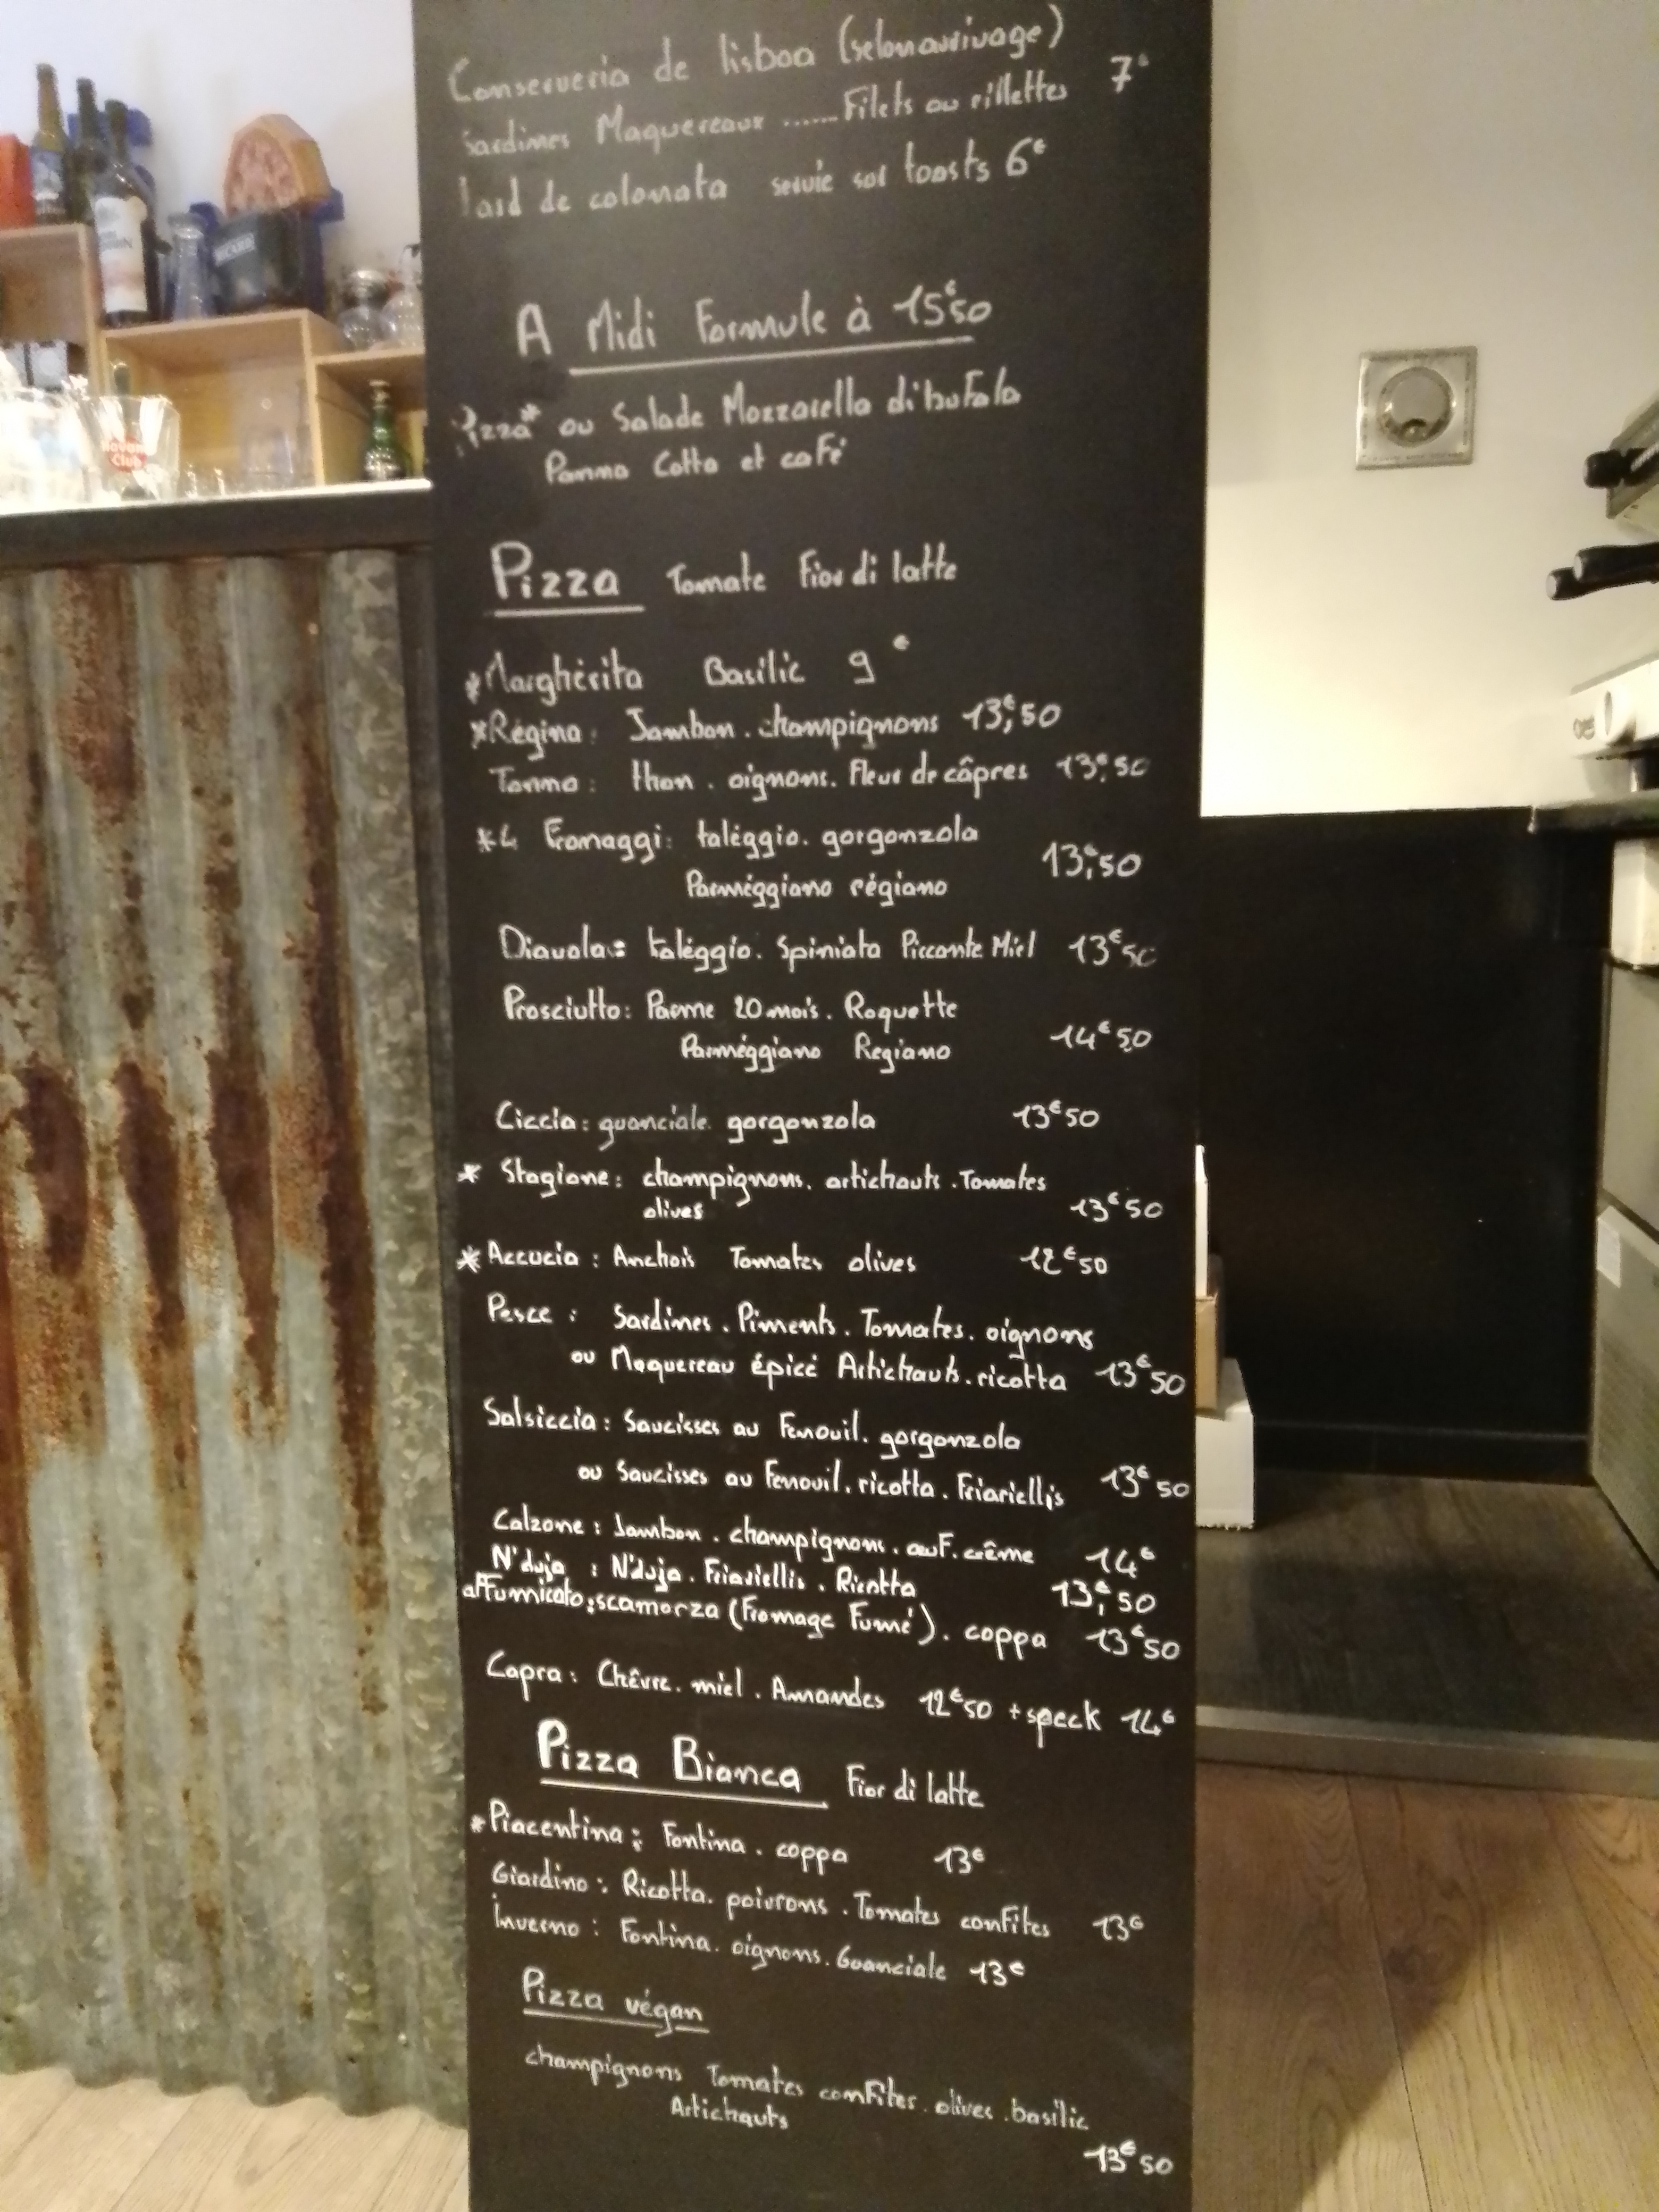 Conserveria de lisboa (selon arrivage)
Sardines Maquereaux ...... Filets ou rillettes 7€
lard de colonata servie sur toasts 6€
A Midi Formule à 15€50
Pizza* ou Salade Mozzarella di bufala
Panna Cotta et café
Pizza Tomate Fior di latte
*Marghérita Basilic 9€
*Régina: Jambon. champignons 13€,50
Tonno: thon. oignons. Fleur de câpres 13€,50
*4 Fromaggi: taléggio. gorgonzola
Parméggiano régiano 13€,50
Diavola: taléggio. Spiniata Piccante Miel 13€50
Prosciutto: Parme 20 mois. Roquette
Parméggiano Regiano 14€50
Ciccia: guanciale. gorgonzola 13€50
* Stagione: champignons. artichauts. Tomates
olives 13€50
*Accucia: Anchois Tomates olives 12€50
Pesce: Sardines. Piments. Tomates. oignons
ou Maquereau épicé Artichauts. ricotta 13€50
Salsiccia: Saucisses au Fenouil. gorgonzola
ou Saucisses au Fenouil. ricotta. Friariellis 13€50
Calzone: Jambon. champignons. œuf. crème 14€
N'duja: N'duja. Friariellis. Ricotta 13€,50
affumicato: scamorza (Fromage Fumé). coppa 13€50
Capra: Chêvre. miel. Amandes 12€50 + speck 14€
Pizza Bianca Fior di latte
*Piacentina: Fontina. coppa 13€
Giardino: Ricotta. poivrons. Tomates confites 13€
Inverno: Fontina. oignons. Guanciale 13€
Pizza végan
champignons Tomates confites. olives. basilic
Artichauts
13€50
Havana
Club